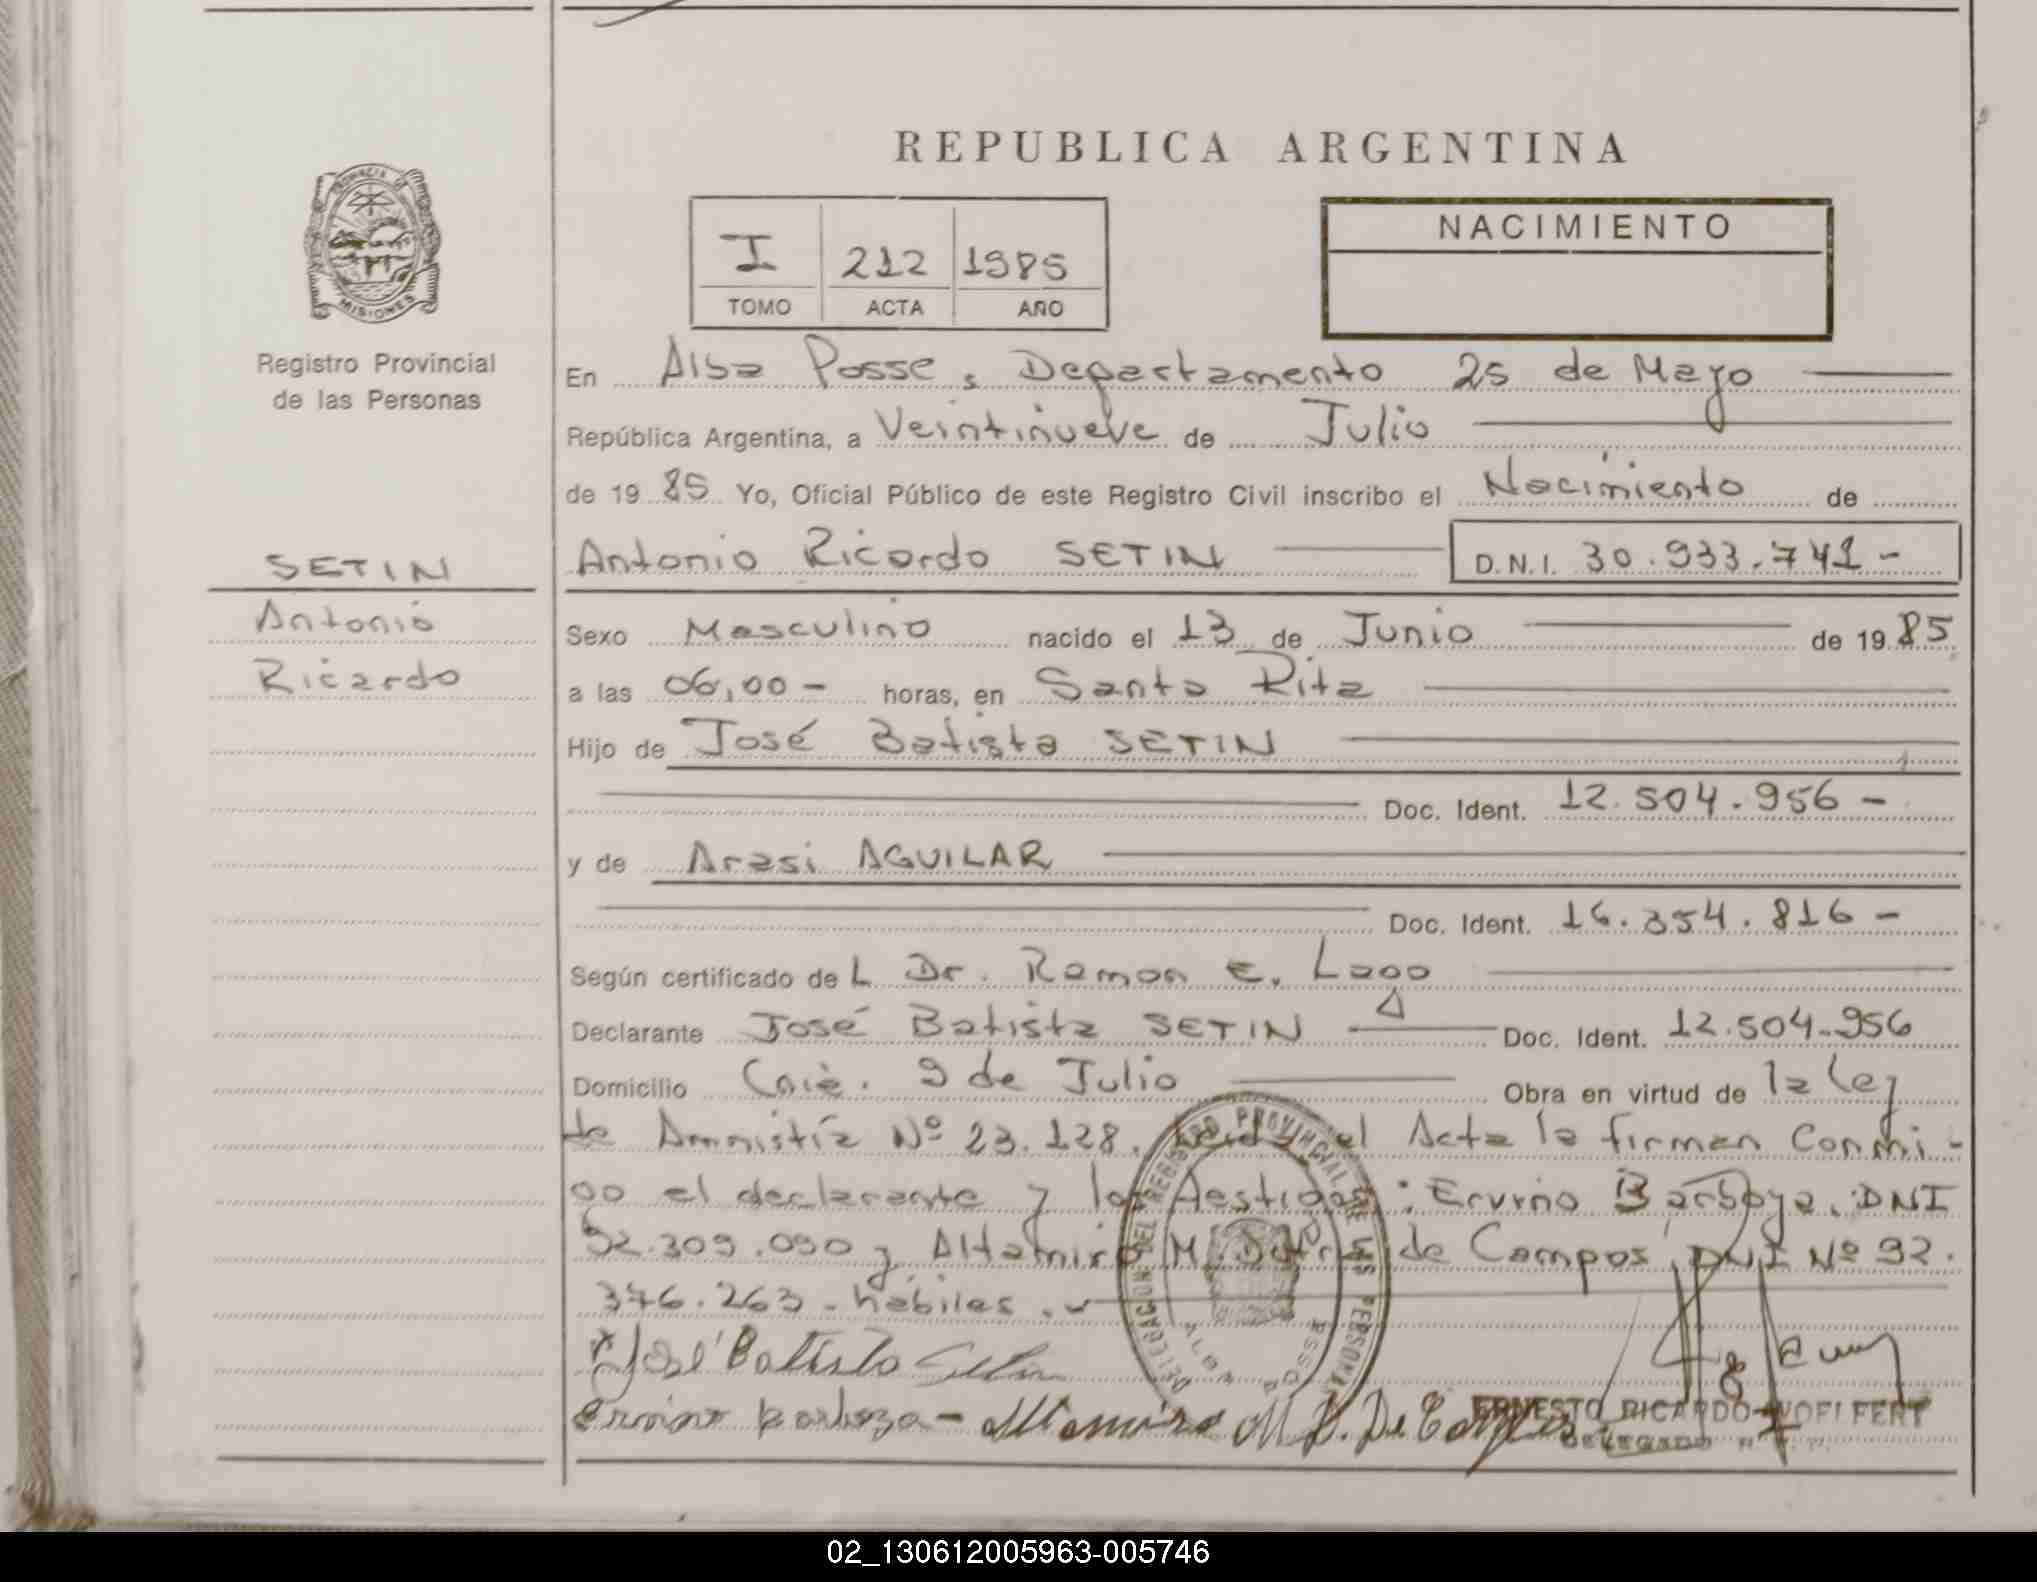 REPUBLICA ARGENTINA
PROVINCIA DE MISIONES
Registro Provincial
de las Personas
I 212 1985
TOMO ACTA AÑO
NACIMIENTO
En Alba Posse, Departamento 25 de Mayo
República Argentina, a Veintinueve de Julio
de 19 85 Yo, Oficial Público de este Registro Civil inscribo el Nacimiento de
SETIN
Antonio
Ricardo
Antonio Ricardo SETIN D.N.I. 30.933.741-
Sexo Masculino nacido el 13 de Junio de 19 85
a las 06,00- horas, en Santa Rita
Hijo de José Batista SETIN
Doc. Ident. 12.504.956-
y de Arasi AGUILAR
Doc. Ident. 16.354.816-
Según certificado de L Dr. Ramon E. Lago
Declarante José Batista SETIN Doc. Ident. 12.504.956
Domicilio 9 de Julio Obra en virtud de la Ley
de Amnistía Nº 23.128, Leida el Acta la firman Conmi-
go el declarante y los testigos: Ervino Barboza, DNI
92.309.090 y Altamiro M. de Campos, DNI Nº 92.
376.263 - hábiles.
DELEGACION DEL REGISTRO PROVINCIAL DE LAS PERSONAS
ALBA POSSE
José Batista Setin
Ervino Barboza - Altamiro M. D. De Campos
ERNESTO RICARDO
DELEGADO
02_130612005963-005746